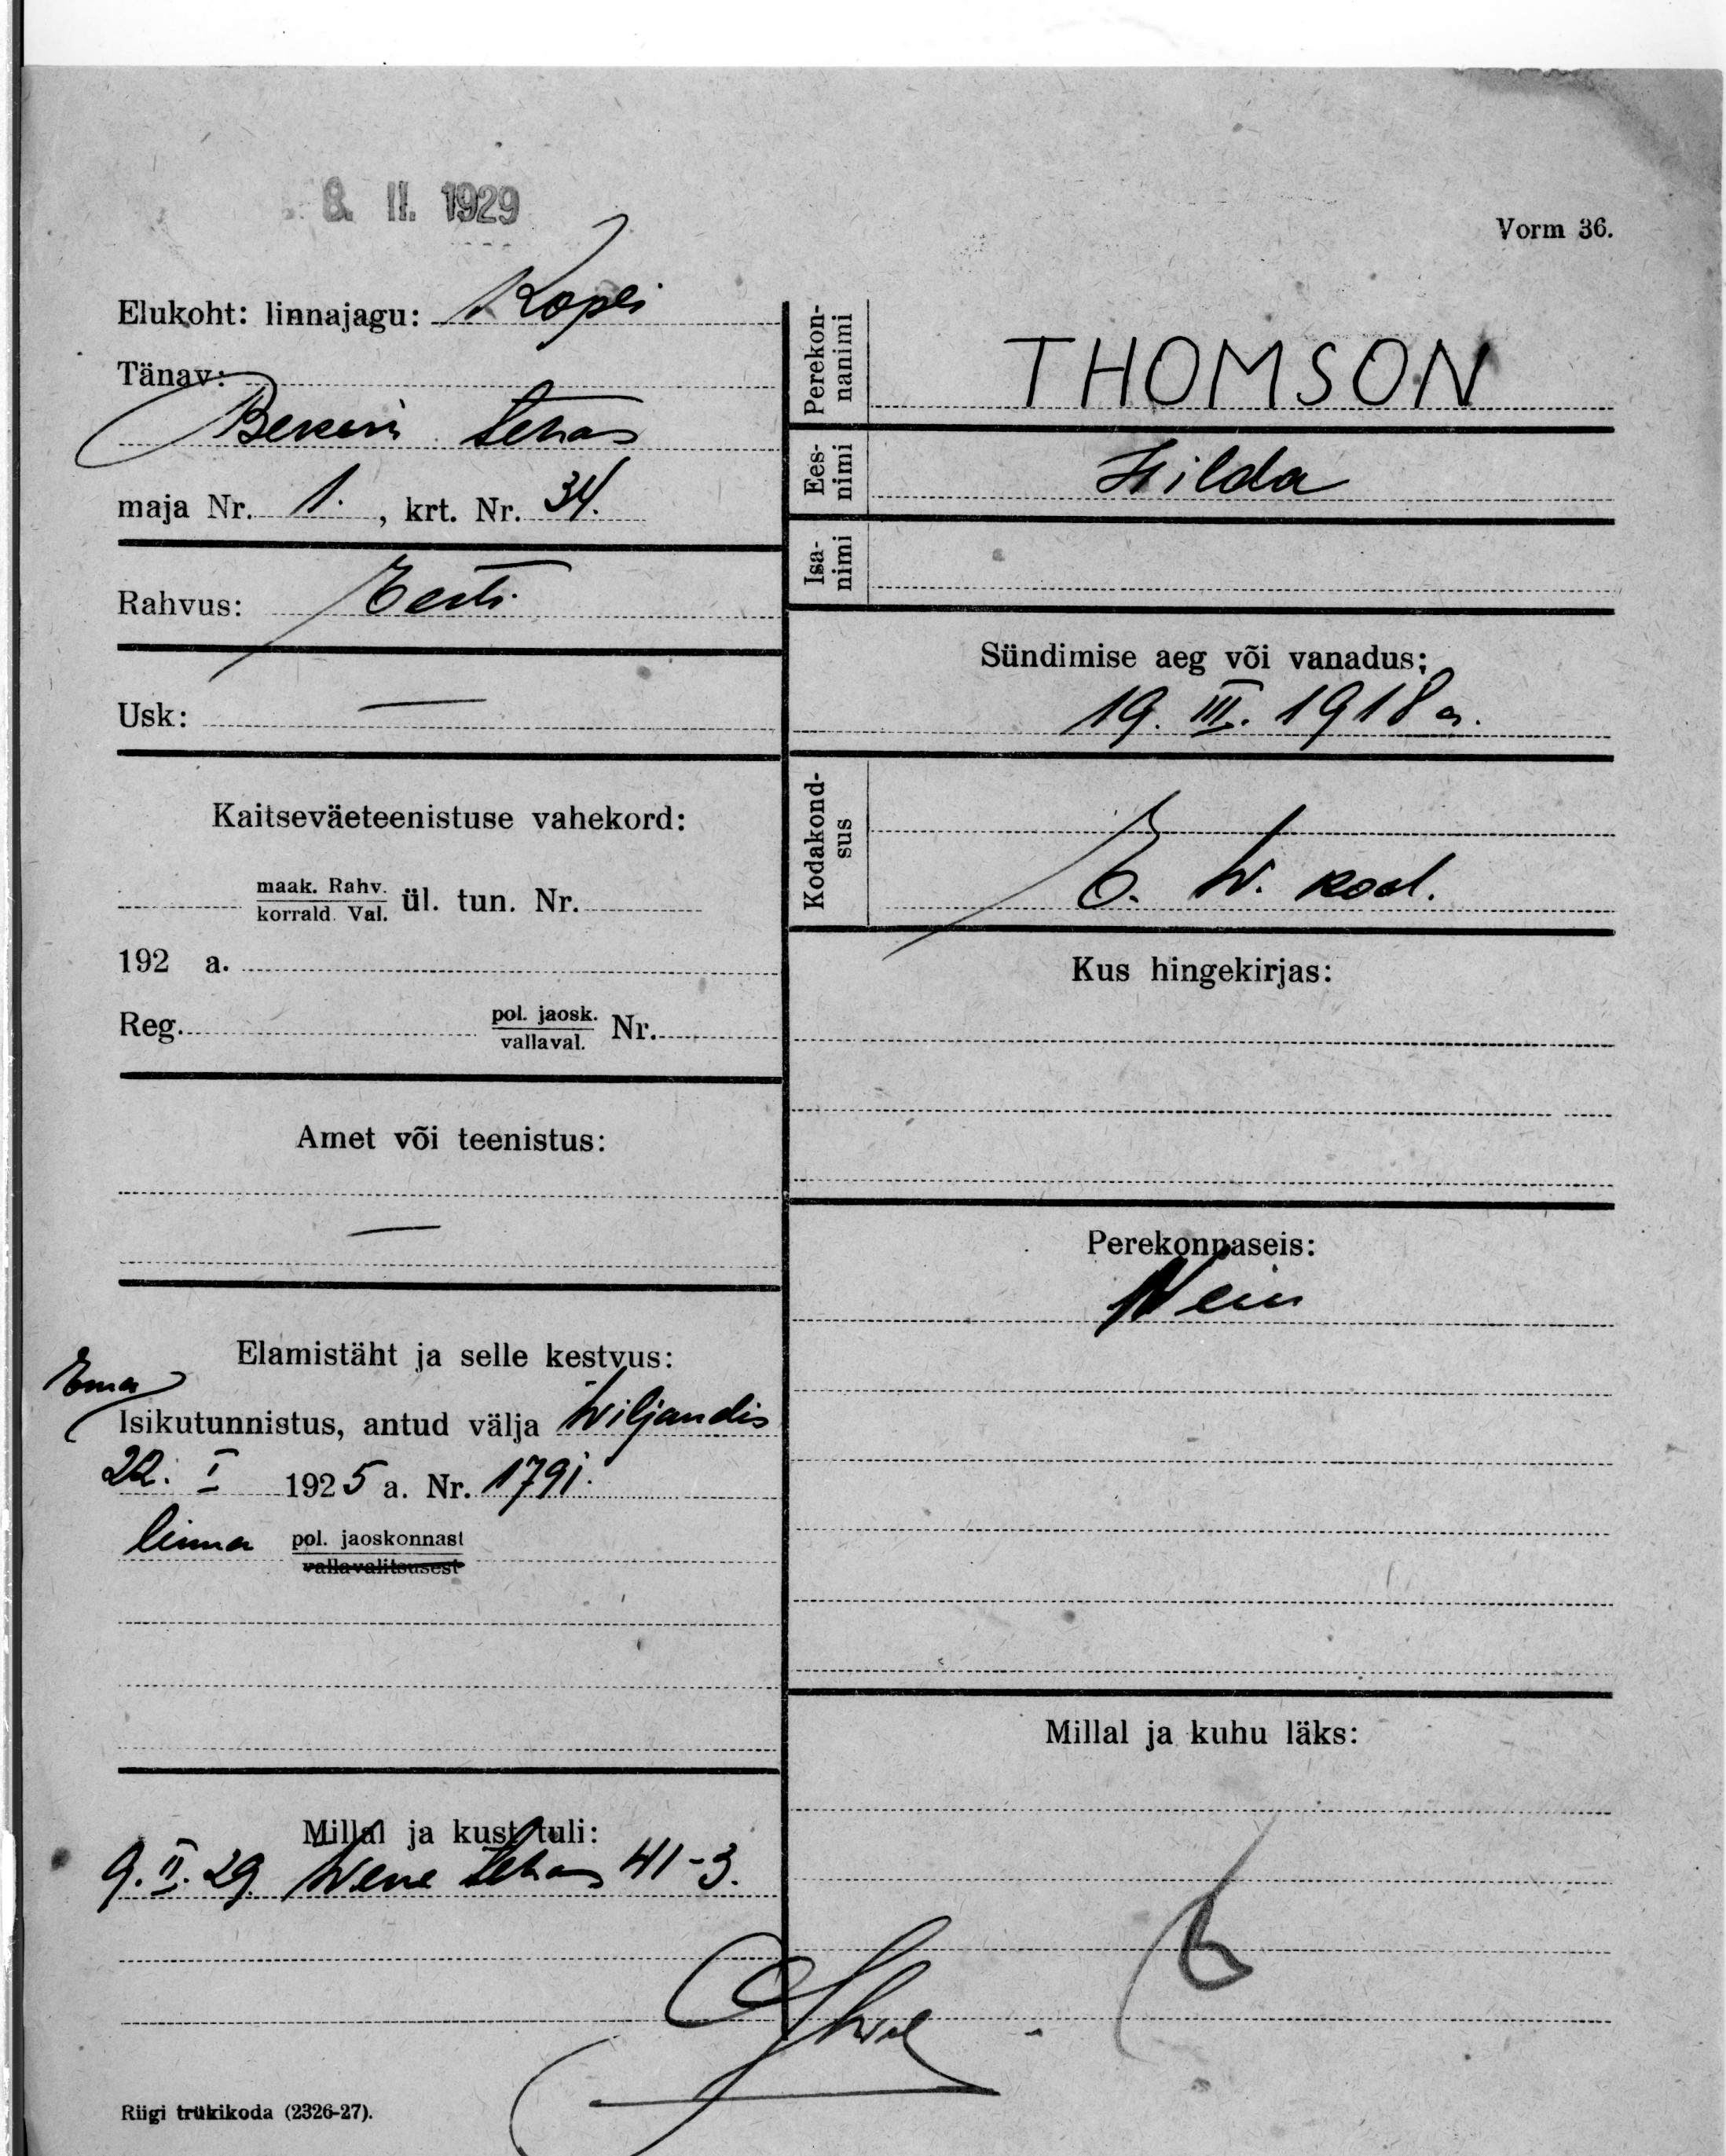 8. II. 1929
Vorm 36.
Elukoht: linnajagu: Kopli
Tänav:
Bekeri tehas
maja Nr. 1. , krt. Nr. 34.
Rahvus: Eesti
Usk: —
Kaitseväeteenistuse vahekord:
maak. Rahv.
korrald. Val. ül. tun. Nr.
192 a.
Reg. pol. jaosk.
vallaval. Nr.
Amet või teenistus:
—
Elamistäht ja selle kestvus:
Ema
Isikutunnistus, antud välja Wiljandis
22. I 1925 a. Nr. 1791.
linna pol. jaoskonnast
vallavalitsusest
Millal ja kust tuli:
9. II. 29. Wene tehas 41-3.
Riigi trükikoda (2326-27).
Perekon-
nanimi
THOMSON
Ees-
nimi
Hilda
Isa-
nimi
Sündimise aeg või vanadus:
19. III. 1918 a.
Kodakond-
sus
E. W. kod.
Kus hingekirjas:
Perekonnaseis:
Millal ja kuhu läks: